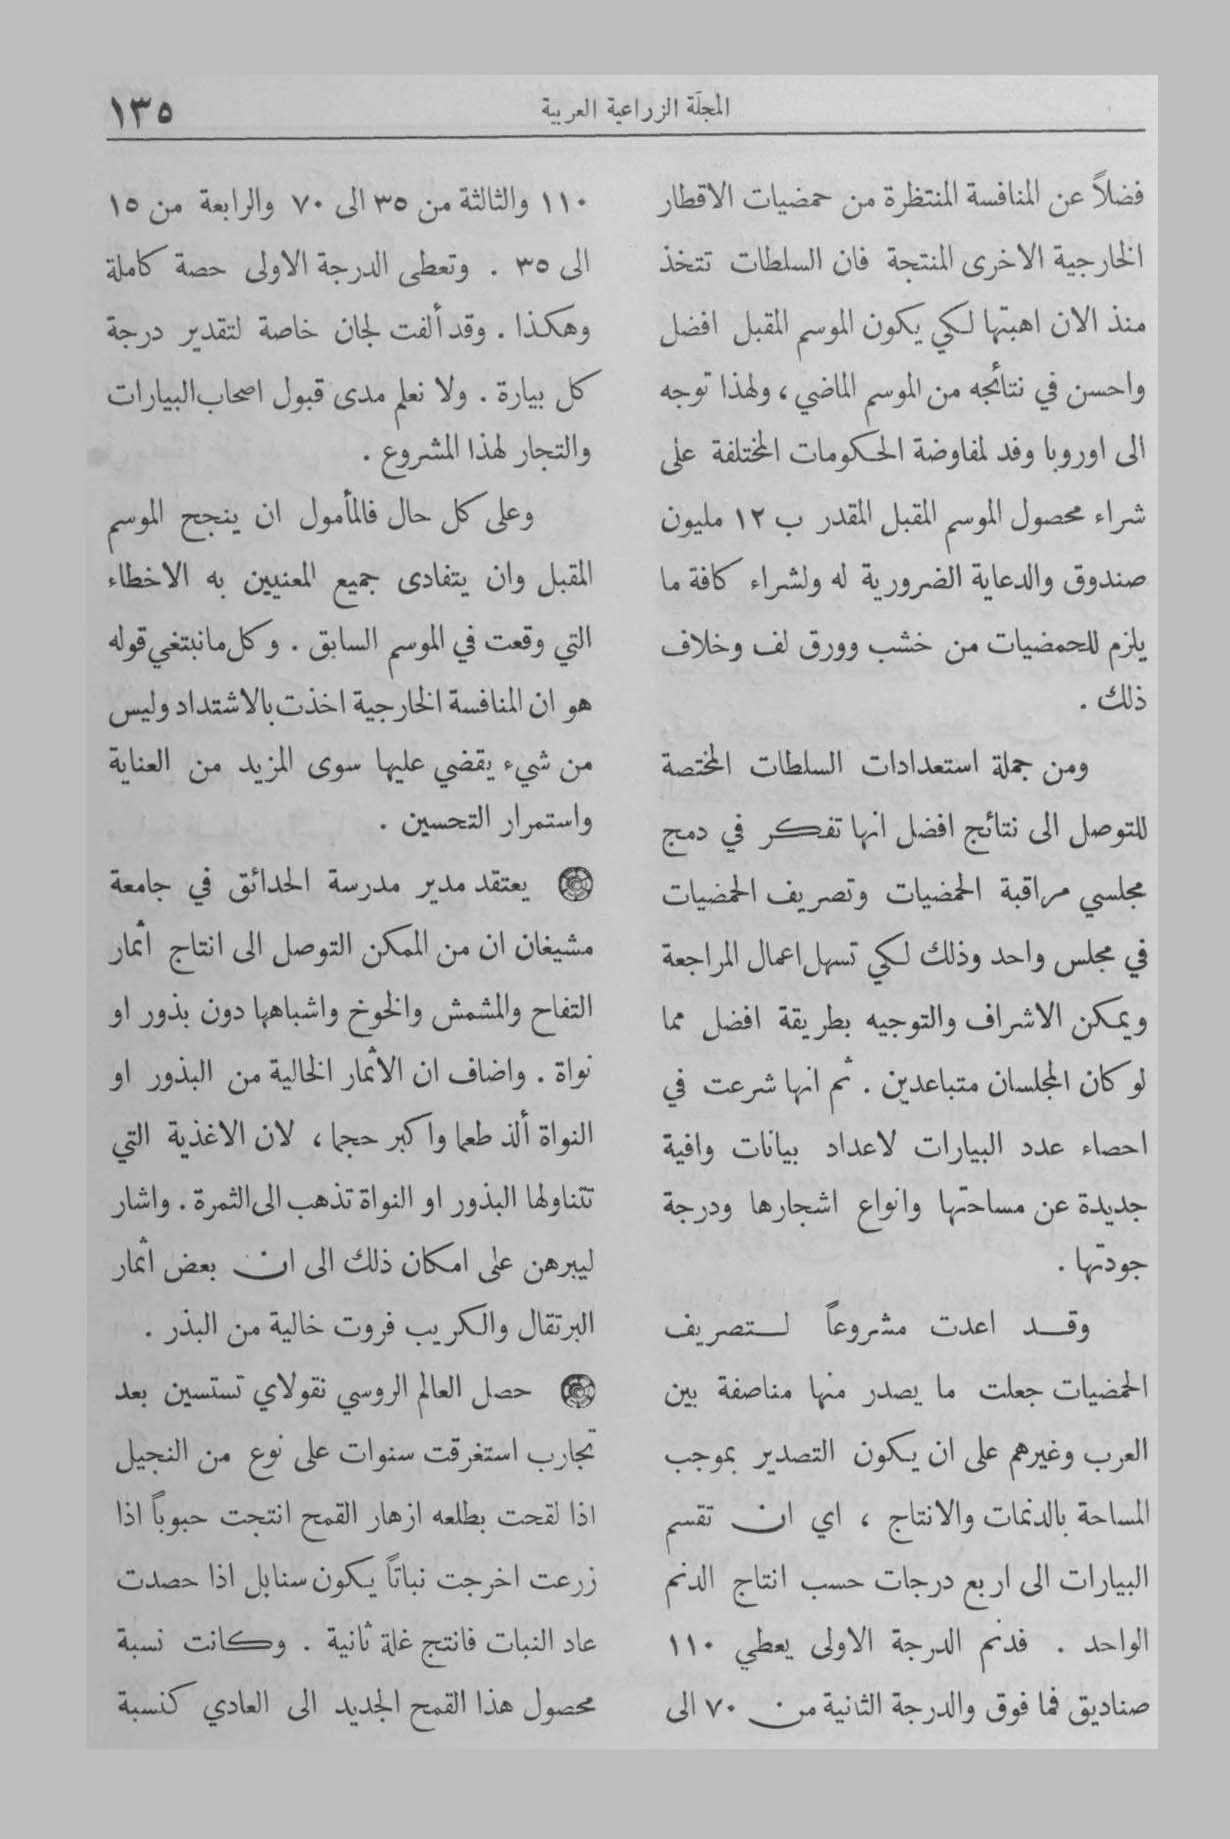 المجلّة الزراعية العربية
١٣٥
فضلاً عن المنافسة المنتظرة من حمضيات الاقطار
الخارجية الاخرى المنتجة فان السلطات تتخذ
منذ الان اهبتها لكي يكون الموسم المقبل افضل
واحسن في نتائجه من الموسم الماضي ، ولهذا توجه
الى اوروبا وفد لمفاوضة الحكومات المختلفة على
شراء محصول الموسم المقبل المقدر ب ١٢ مليون
صندوق والدعاية الضرورية له ولشراء كافة ما
يلزم للحمضيات من خشب وورق لف وخلاف
ذلك .
ومن جملة استعدادات السلطات المختصة
للتوصل الى نتائج افضل انها تفكر في دمج
مجلسي مراقبة الحمضيات وتصريف الحمضيات
في مجلس واحد وذلك لكي تسهل اعمال المراجعة
ويمكن الاشراف والتوجيه بطريقة افضل مما
لو كان المجلسان متباعدين . ثم انها شرعت في
احصاء عدد البيارات لاعداد بيانات وافية
جديدة عن مساحتها وانواع اشجارها ودرجة
جودتها .
وقد اعدت مشروعاً لتصريف
الحمضيات جعلت ما يصدر منها مناصفة بين
العرب وغيرهم على ان يكون التصدير بموجب
المساحة بالدنمات والانتاج ، اي ان تقسم
البيارات الى اربع درجات حسب انتاج الدنم
الواحد . فدنم الدرجة الاولى يعطي ١١٠
صناديق فما فوق والدرجة الثانية من ٧٠ الى
١١٠ والثالثة من ٣٥ الى ٧٠ والرابعة من ١٥
الى ٣٥ . وتعطى الدرجة الاولى حصة كاملة
وهكذا . وقد ألفت لجان خاصة لتقدير درجة
كل بيارة . ولا نعلم مدى قبول اصحاب البيارات
والتجار لهذا المشروع .
وعلى كل حال فالمأمول ان ينجح الموسم
المقبل وان يتفادى جميع المعنيين به الاخطاء
التي وقعت في الموسم السابق . وكل ما نبتغي قوله
هو ان المنافسة الخارجية اخذت بالاشتداد وليس
من شيء يقضي عليها سوى المزيد من العناية
واستمرار التحسين .
يعتقد مدير مدرسة الحدائق في جامعة
مشيغان ان من الممكن التوصل الى انتاج اثمار
التفاح والمشمش والخوخ واشباهها دون بذور او
نواة . واضاف ان الاثمار الخالية من البذور او
النواة ألذ طعما واكبر حجما ، لان الاغذية التي
تتناولها البذور او النواة تذهب الى الثمرة . واشار
ليبرهن على امكان ذلك الى ان بعض اثمار
البرتقال والكريب فروت خالية من البذر .
حصل العالم الروسي نقولاي تستسين بعد
تجارب استغرقت سنوات على نوع من النجيل
اذا لقحت بطلعه ازهار القمح انتجت حبوباً اذا
زرعت اخرجت نباتاً يكون سنابل اذا حصدت
عاد النبات فانتج غلة ثانية . وكانت نسبة
محصول هذا القمح الجديد الى العادي كنسبة